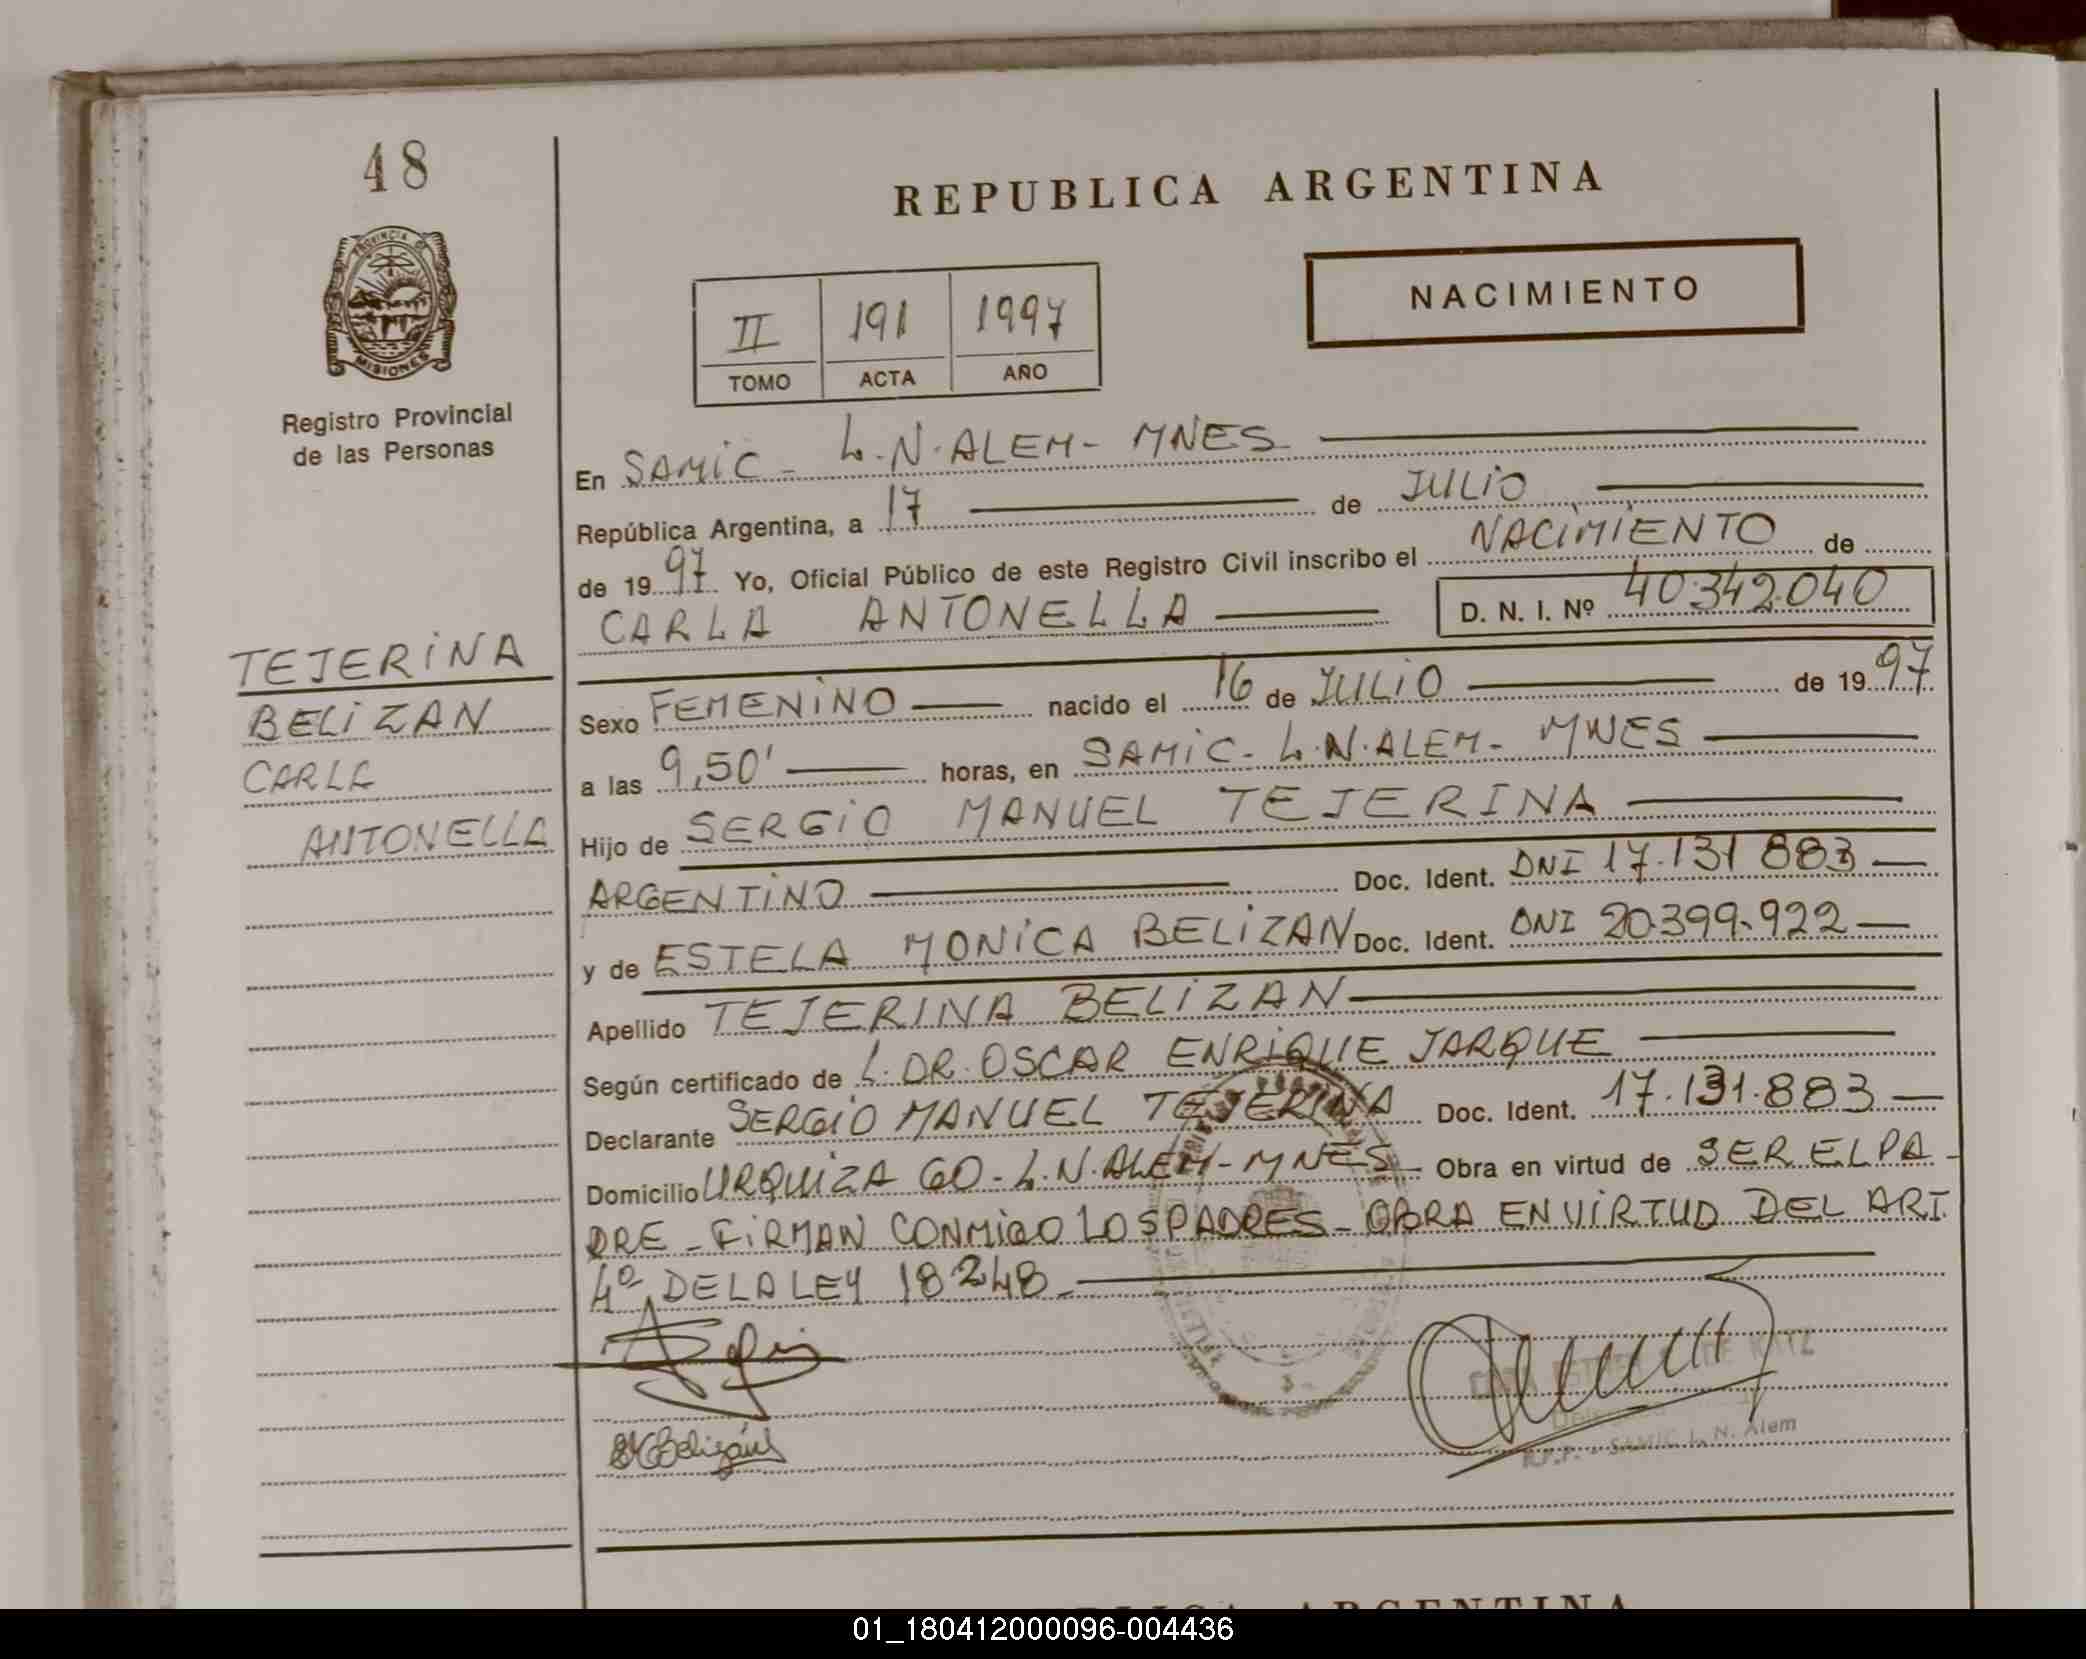 48
PROVINCIA DE
MISIONES
Registro Provincial
de las Personas
REPUBLICA ARGENTINA
NACIMIENTO
II 191 1997
TOMO ACTA AÑO
En SAMIC - L.N.ALEM - MNES
República Argentina, a 17 de JULIO
de 1997 Yo, Oficial Público de este Registro Civil inscribo el NACIMIENTO de
CARLA ANTONELLA D. N. I. Nº 40.342.040
TEJERINA
BELIZAN
CARLA
ANTONELLA
Sexo FEMENINO nacido el 16 de JULIO de 1997
a las 9,50' horas, en SAMIC - L.N.ALEM - MNES
Hijo de SERGIO MANUEL TEJERINA
ARGENTINO Doc. Ident. DNI 17.131.883
y de ESTELA MONICA BELIZAN Doc. Ident. DNI 20.399.922
Apellido TEJERINA BELIZAN
Según certificado de L. DR. OSCAR ENRIQUE JARQUE
Declarante SERGIO MANUEL TEJERINA Doc. Ident. 17.131.883
Domicilio URQUIZA 60 - L.N.ALEM - MNES Obra en virtud de SER EL PA-
DRE - FIRMAN CONMIGO LOS PADRES - OBRA EN VIRTUD DEL ART.
4º DE LA LEY 18248 -
Belizán
DE KATZ
R.P.P. - SAMIC L. N. Alem
01_180412000096-004436